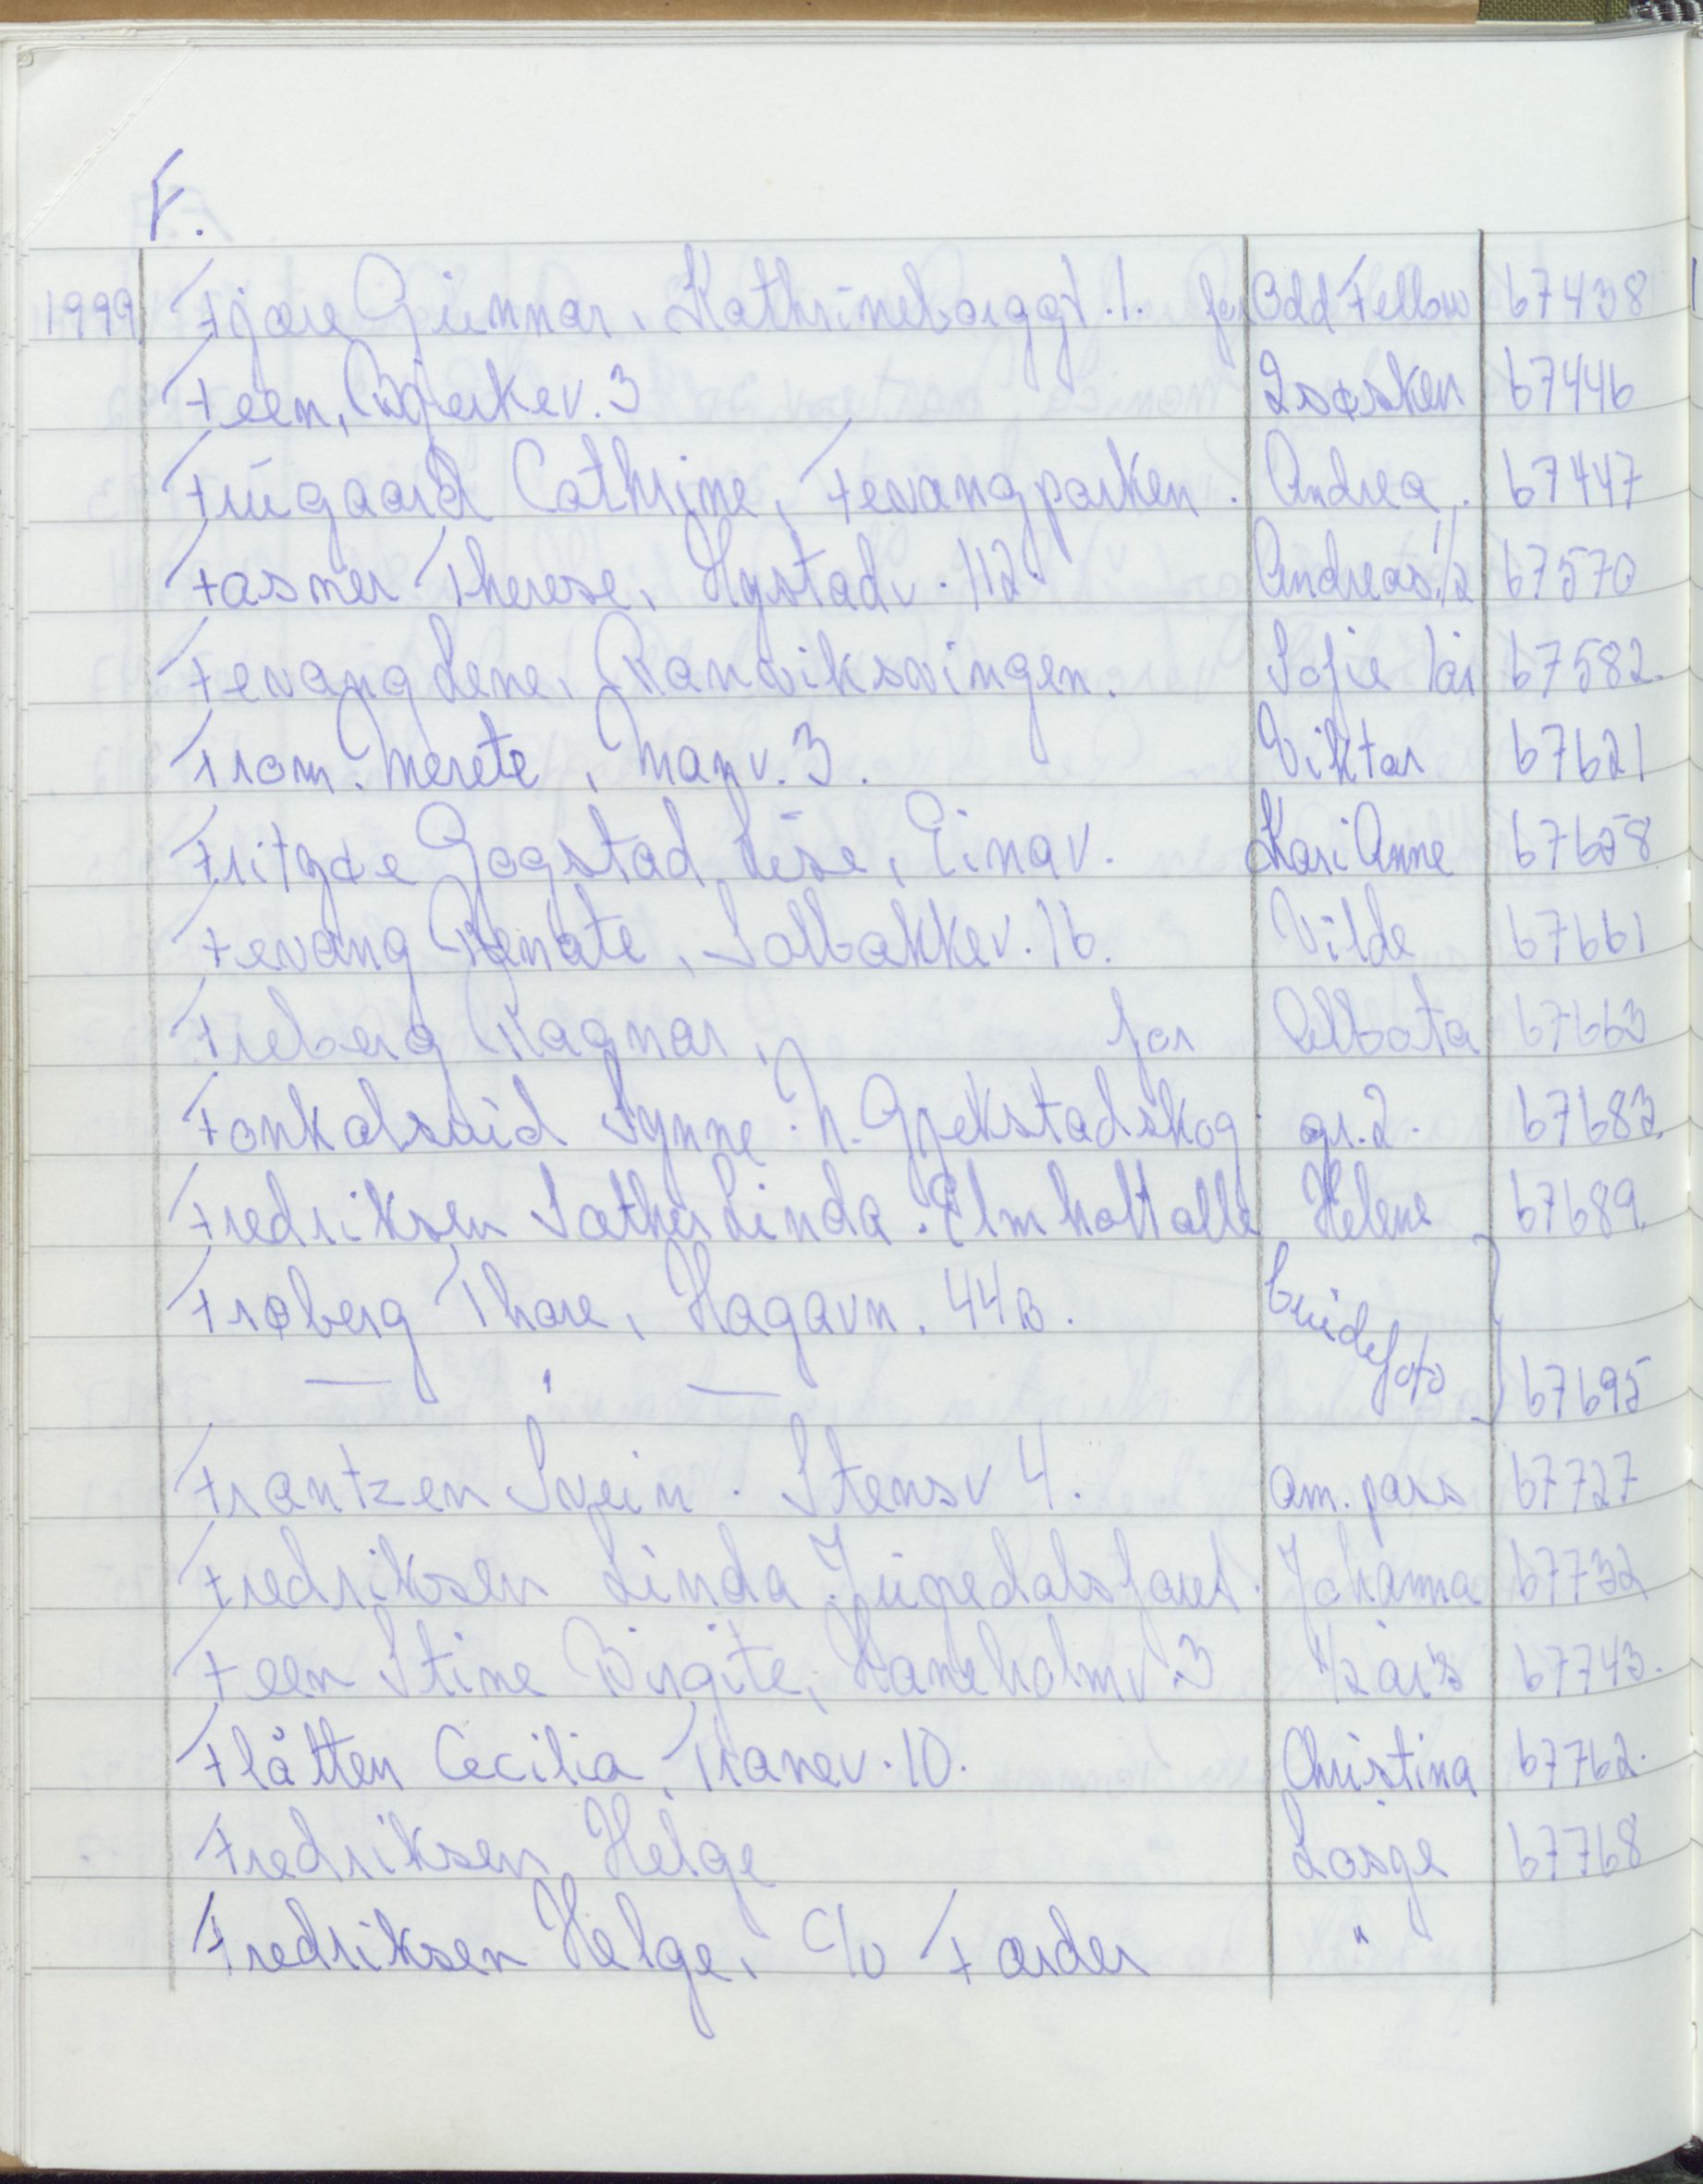 F.
1999 Fjære Gunnar, Kathrineborggt. 1. for Odd Fellow 67438
Feen, Bjerkev. 3 2 søsken 67446
Fuugaard Cathrine, Fevangparken. Andrea. 67447
Fasmer Therese, Hystadv. 112 Andreas 1/2 67570
Fevang Lene, Ranviksvingen. Sofie 1 år 67582.
From Merete, Marv. 3. Viktor 67621
Fritzøe Gogstad Lise, Einav. Kari Anne 67658
Fevang Renate, Solbakkev. 16. Vilde 67661
Freberg Ragnar, for Albota 67663
Fonkalsrud Synne. N. Gjekstadskog gr. 2. 67683.
Fredriksen Sæther Linda. Elmholt alle Helene 67689.
Frøberg Thore, Hagavn. 44B. brudefoto
— " — 67695
Frantzen Svein. Stensv 4. am. pass 67727
Fredriksen Linda Ljugedalsfaret. Johanna 67732
Feen Stine Birgite, Haneholmv. 3 1/2 års 67743.
Flåtten Cecilia, Tranev. 10. Christina 67762.
Fredriksen Helge Losge 67768
Fredriksen Helge, C/o Færder "